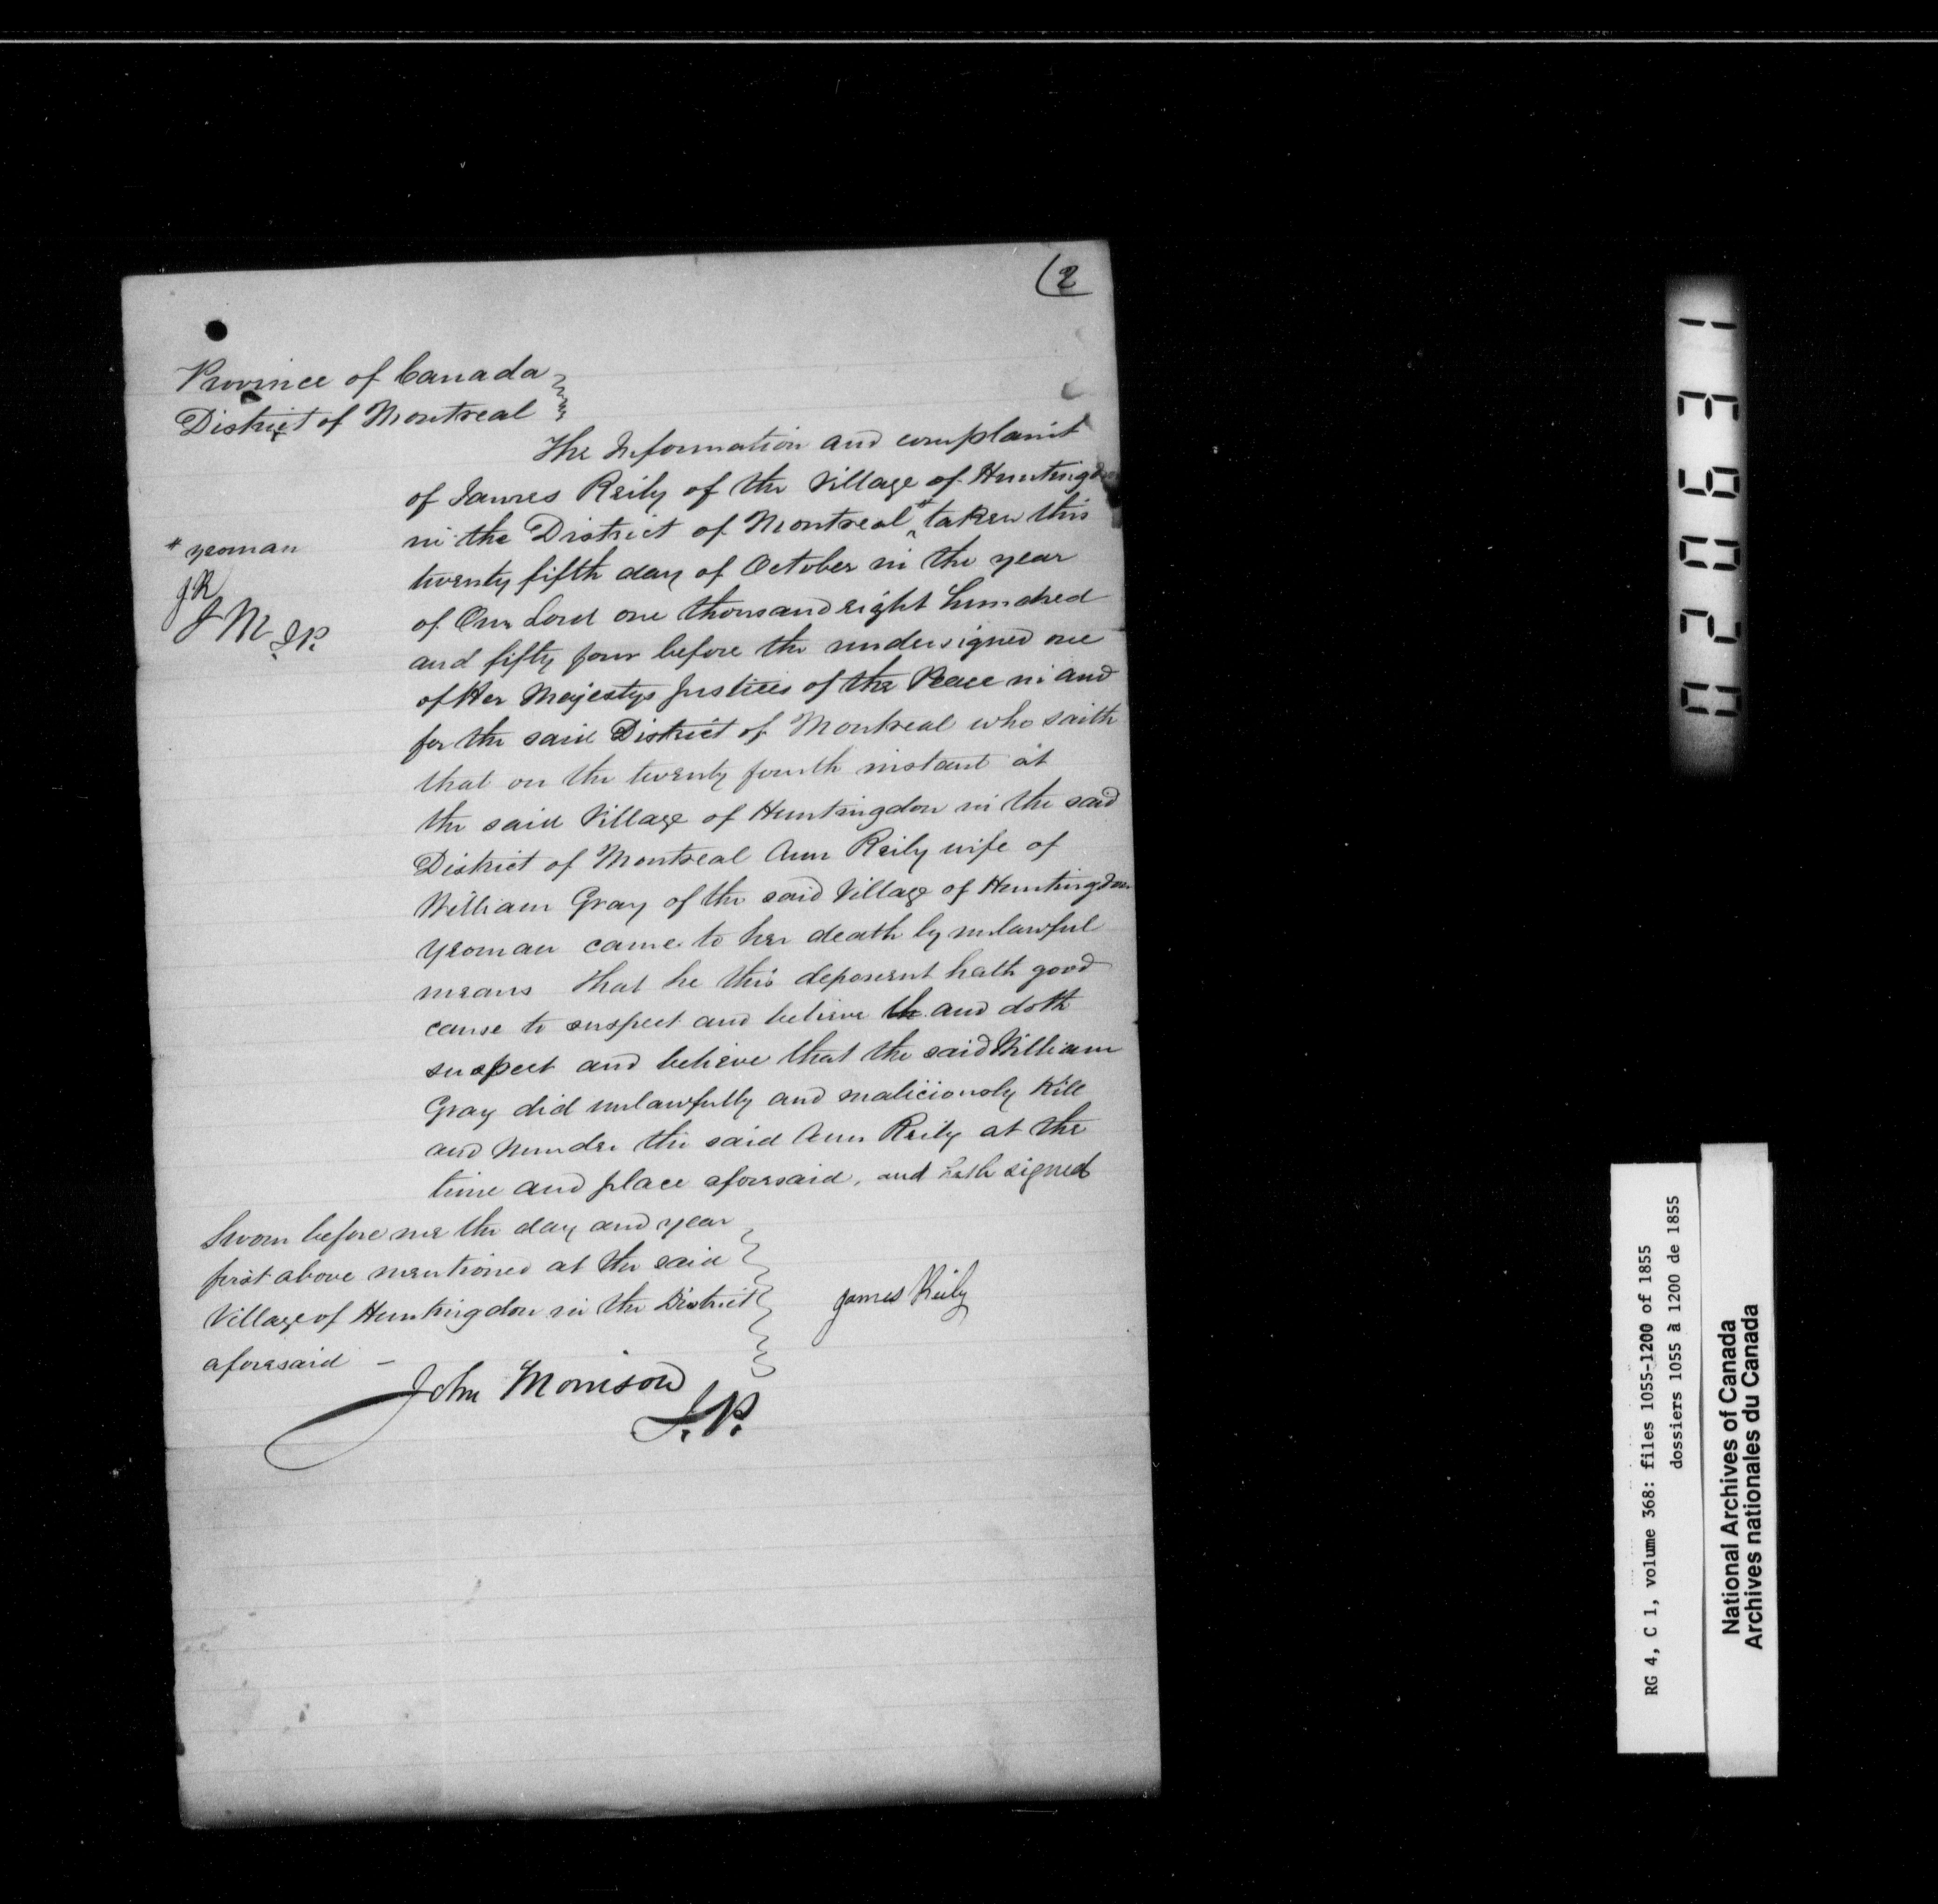 (2
Province of Canada
District of Montreal
The Information and complaint
of James Reily of the Village of Huntingdon
in the District of Montreal # taken this
# yeoman
JR
JM J.P.
twenty fifth day of October in the year
of Our Lord one thousand eight hundred
and fifty four before the undersigned one
of Her Majestys Justices of the Peace in and
for the said District of Montreal who saith
that on the twenty fourth instant at
the said Village of Huntingdon in the said
District of Montreal Ann Reily wife of
William Gray of the said Village of Huntingdon
yeoman came to her death by unlawful
means that he this deponent hath good
cause to suspect and believe th and doth
suspect and believe that the said William
Gray did unlawfully and maliciously kill
and Murder the said Ann Reily at the
time and place aforesaid, and hath signed
Sworn before me the day and year
first above mentioned at the said
Village of Huntingdon in the District
aforesaid –
James Reily
John Morrison
J.P.
020631
RG 4, C 1, volume 368: files 1055-1200 of 1855
dossiers 1055 à 1200 de 1855
National Archives of Canada
Archives nationales du Canada